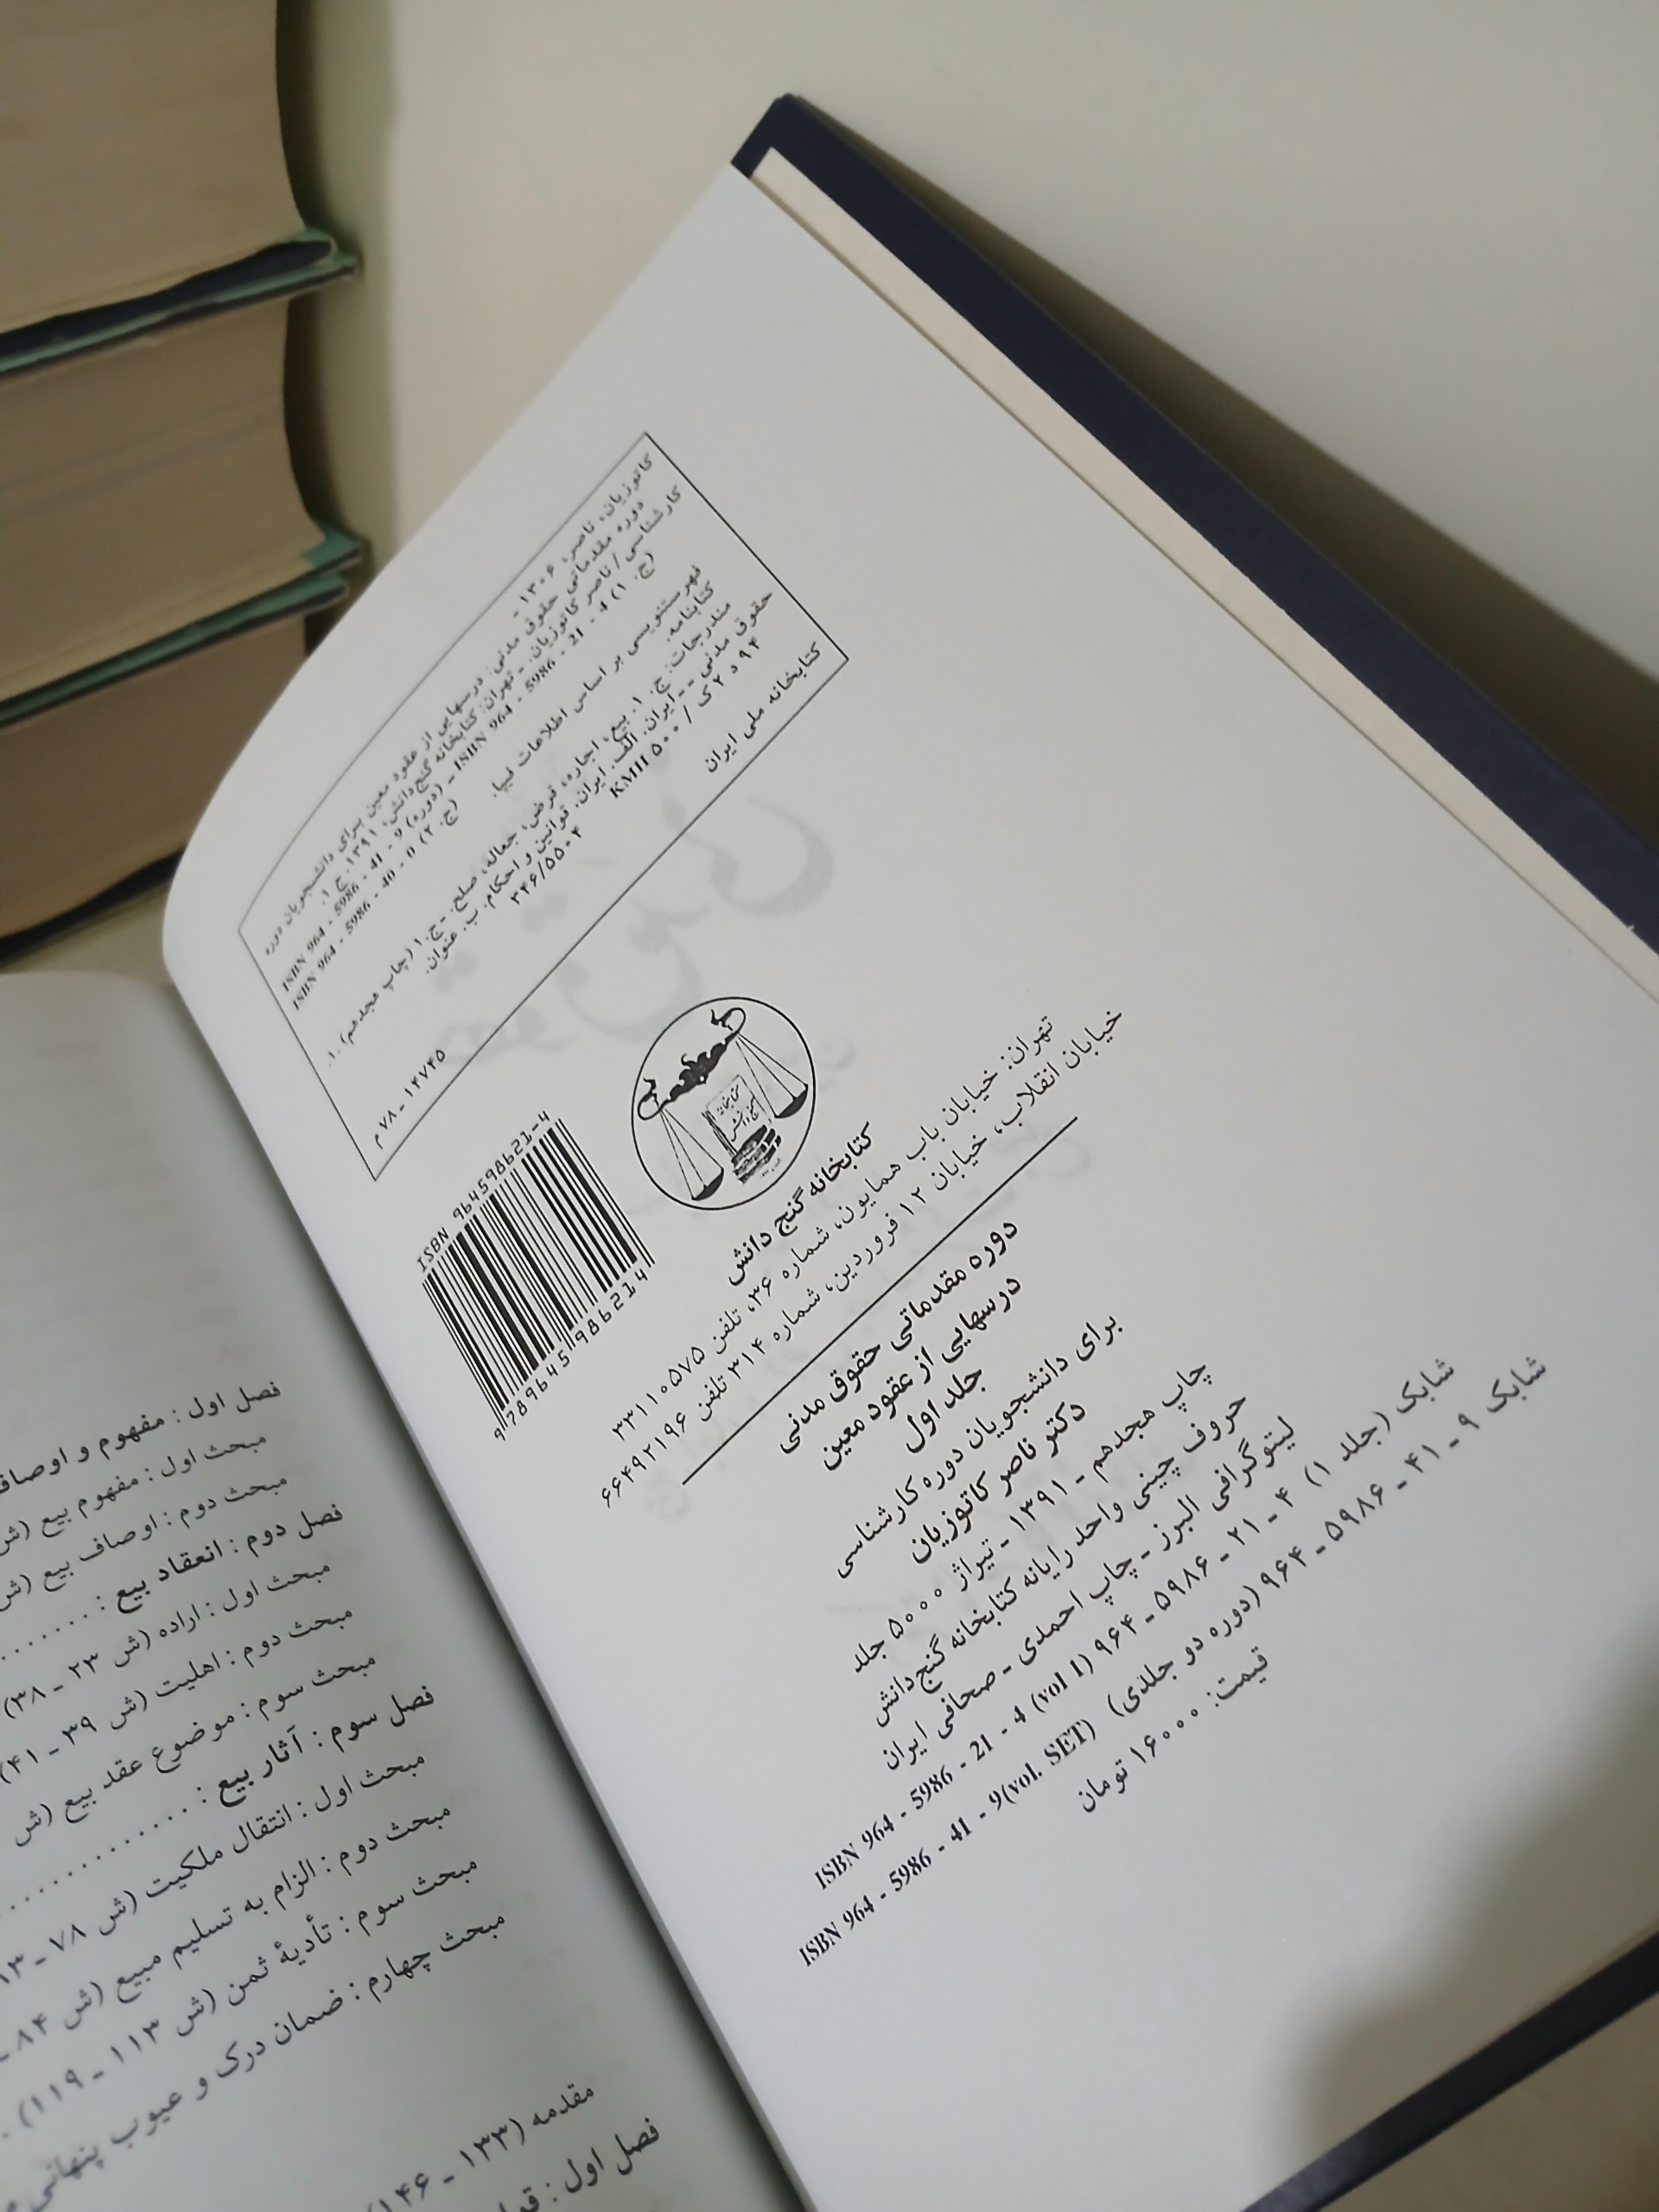 کاتوزیان، ناصر، ۱۳۰۶ -
دوره مقدماتی حقوق مدنی: درسهایی از عقود معین برای دانشجویان دوره
کارشناسی / ناصر کاتوزیان. - تهران: کتابخانه گنج‌دانش، ۱۳۹۱. ج ۱.
(ج. ۱) 4 - 21 - 5986 - 964 ISBN - (دوره) 9 - 41 - 5986 - 964 ISBN
(ج. ۲) 0 - 40 - 5986 - 964 ISBN
فهرستنویسی بر اساس اطلاعات فیپا.
کتابنامه.
مندرجات: ج. ۱. بیع، اجاره، قرض، جعاله، صلح. - ج. ۱ (چاپ هجدهم) ۱۰.
حقوق مدنی - - ایران. الف. ایران. قوانین و احکام. ب. عنوان.
۹۴ د ۲ ک / ۵۰۰ KMH
۳۴۶/۵۵۰۲
کتابخانه ملی ایران
۷۸ - ۱۴۷۴۵ م
ISBN 964598621-4
9 789645 986214
کتابخانه گنج دانش
کتابخانه گنج دانش
تهران: خیابان باب همایون، شماره ۳۶، تلفن ۳۳۱۱۰۵۷۵
خیابان انقلاب، خیابان ۱۲ فروردین، شماره ۳۱۴ تلفن ۶۶۴۹۲۱۹۶
دوره مقدماتی حقوق مدنی
درسهایی از عقود معین
جلد اول
برای دانشجویان دوره کارشناسی
دکتر ناصر کاتوزیان
چاپ هجدهم - ۱۳۹۱ - تیراژ ۵۰۰۰ جلد
حروف چینی واحد رایانه کتابخانه گنج‌دانش
لیتوگرافی البرز - چاپ احمدی - صحافی ایران
شابک (جلد ۱) ۴ - ۲۱ - ۵۹۸۶ - ۹۶۴ ISBN 964 - 5986 - 21 - 4 (vol 1)
شابک ۹ - ۴۱ - ۵۹۸۶ - ۹۶۴ (دوره دو جلدی) ISBN 964 - 5986 - 41 - 9(vol. SET)
قیمت: ۱۶۰۰۰ تومان
فصل اول : مفهوم و اوصاف
مبحث اول : مفهوم بیع (ش
مبحث دوم : اوصاف بیع (ش
فصل دوم : انعقاد بیع : .......
مبحث اول : اراده (ش ۲۳ - ۳۸)
مبحث دوم : اهلیت (ش ۳۹ - ۴۱)
مبحث سوم : موضوع عقد بیع (ش
فصل سوم : آثار بیع : ..............
مبحث اول : انتقال ملکیت (ش ۷۸ - ۱۳
مبحث دوم : الزام به تسلیم مبیع (ش ۸۴ -
مبحث سوم : تأدیهٔ ثمن (ش ۱۱۳ - ۱۱۹) .
مبحث چهارم : ضمان درک و عیوب پنهانی
مقدمه (۱۳۳ - ۱۴۶)
فصل اول :